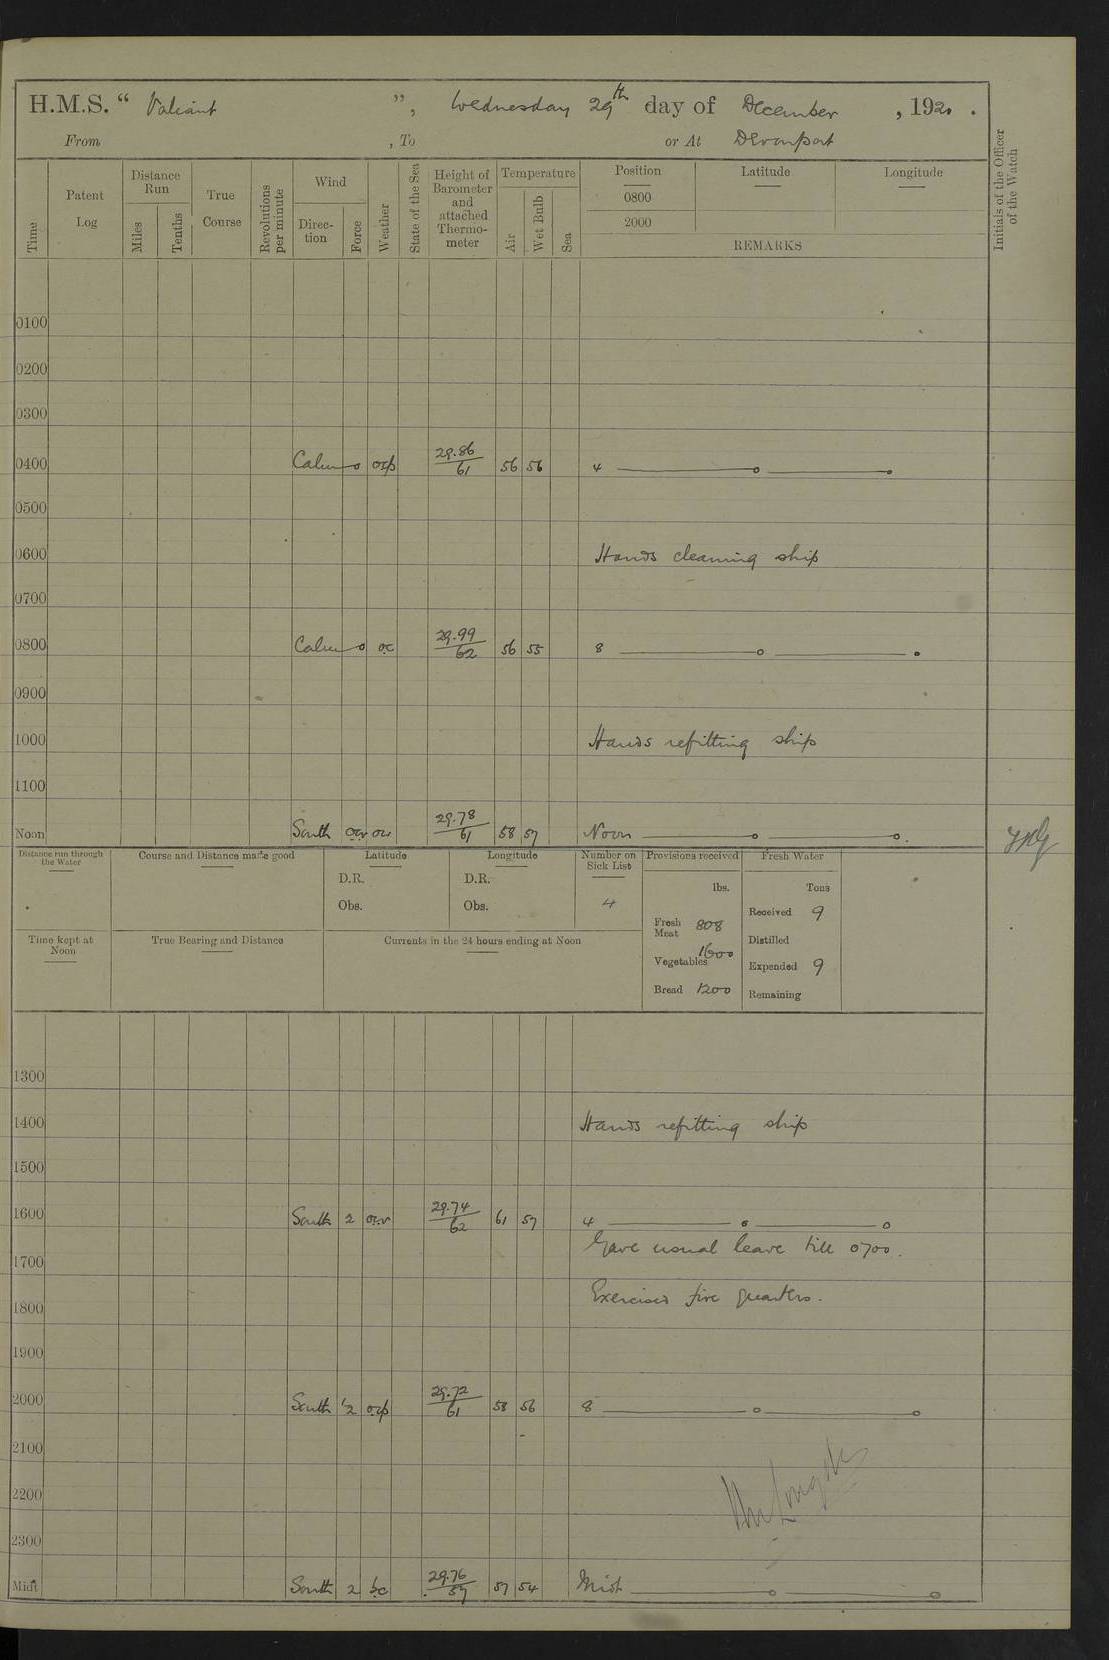 H.M.S. “ Valiant ”, Wednesday 29th day of December , 1920 .
From , To or At Devonport
Time
Patent Log
Distance Run
Miles
Tenths
True Course
Revolutions per minute
Wind
Direction
Force
Weather
State of the Sea
Height of Barometer and attached Thermometer
Temperature
Air
Wet Bulb
Sea
Position Latitude Longitude
0800
2000
REMARKS
Initials of the Officer of the Watch
0100
0200
0300
0400 Calm o orp 29.86/61 56 56 4
0500
0600 Hands cleaning ship
0700
0800 Calm o oc 29.99/62 56 55 8
0900
1000 Hands refitting ship
1100
Noon South 29.78/61 58 57 Noon
Distance run through the Water
Course and Distance made good
Latitude
D.R.
Obs.
Longitude
D.R.
Obs.
Number on Sick List
4
Provisions received
lbs.
Fresh Meat 808
Vegetables 1600
Bread 1200
Fresh Water
Tons
Received 9
Distilled
Expended 9
Remaining
Time kept at Noon
True Bearing and Distance
Currents in the 24 hours ending at Noon
1300
1400 Hands refitting ship
1500
1600 South 2 29.74/62 61 57 4
Gave usual leave till 0700.
1700
Exercised fire quarters.
1800
1900
2000 South 2 orp 29.72/61 58 56 8
2100
2200
2300
Midt South 2 bc 29.76/59 57 54 Midt